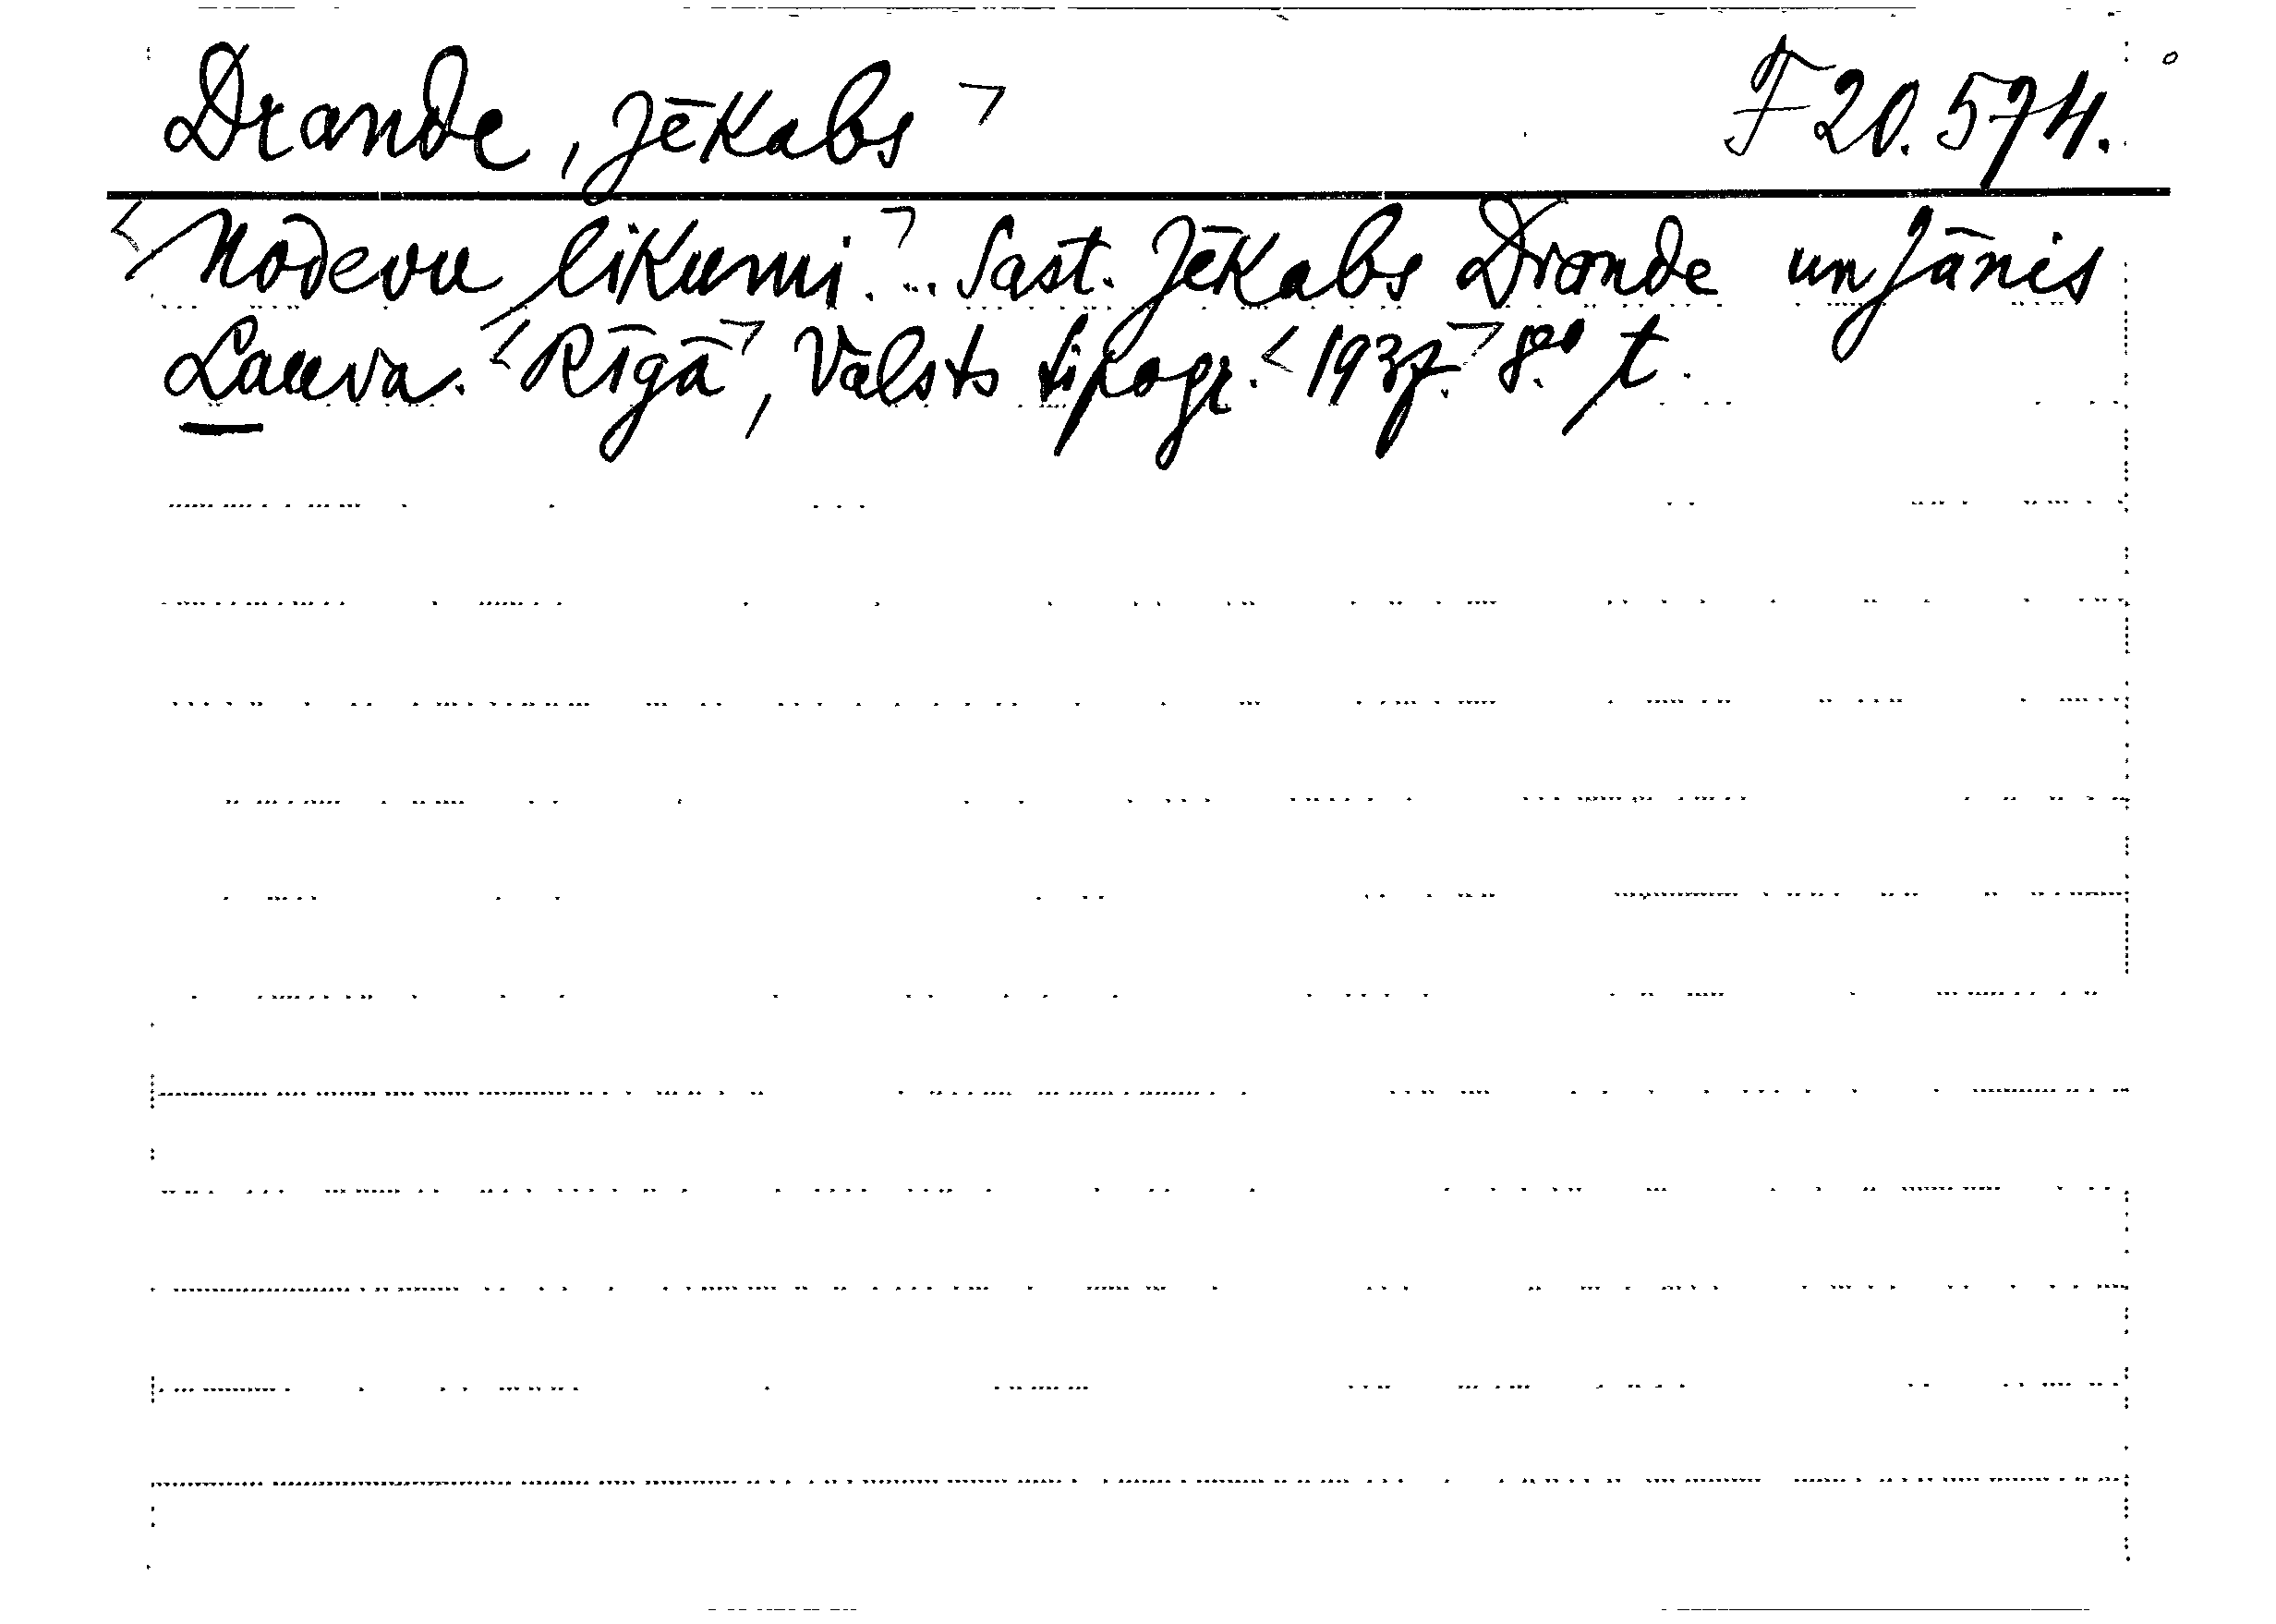 Drande, Jēkabs> F 20.574.
<Nodevu likumi.> ... Sast. Jēkabs Drande un Jānis
Lauva. <Rīgā>, Valsts tipogr. <1937.> 8° t.